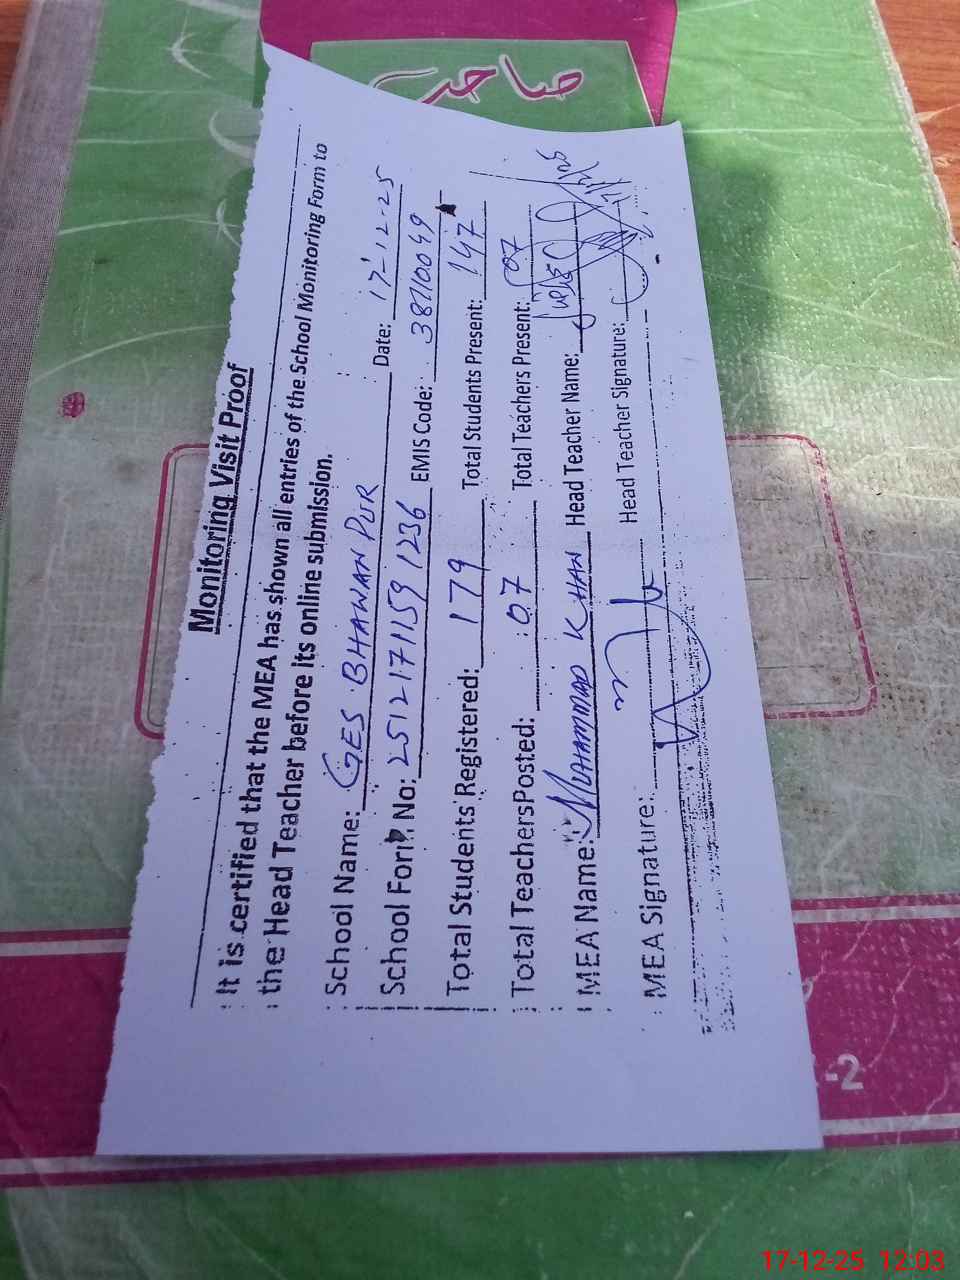 صاحب
Monitoring Visit Proof
It is certified that the MEA has shown all entries of the School Monitoring Form to
the Head Teacher before its online submission.
School Name: GES BHAWAN PUR Date: 17-12-25
School Form No: 2512171159 1236 EMIS Code: 38110049
Total Students Registered: 179 Total Students Present: 147
Total TeachersPosted: 07 Total Teachers Present: 07
MEA Name: MUHAMMAD KHAN Head Teacher Name:
MEA Signature: Head Teacher Signature:
-2
17-12-25 12:03